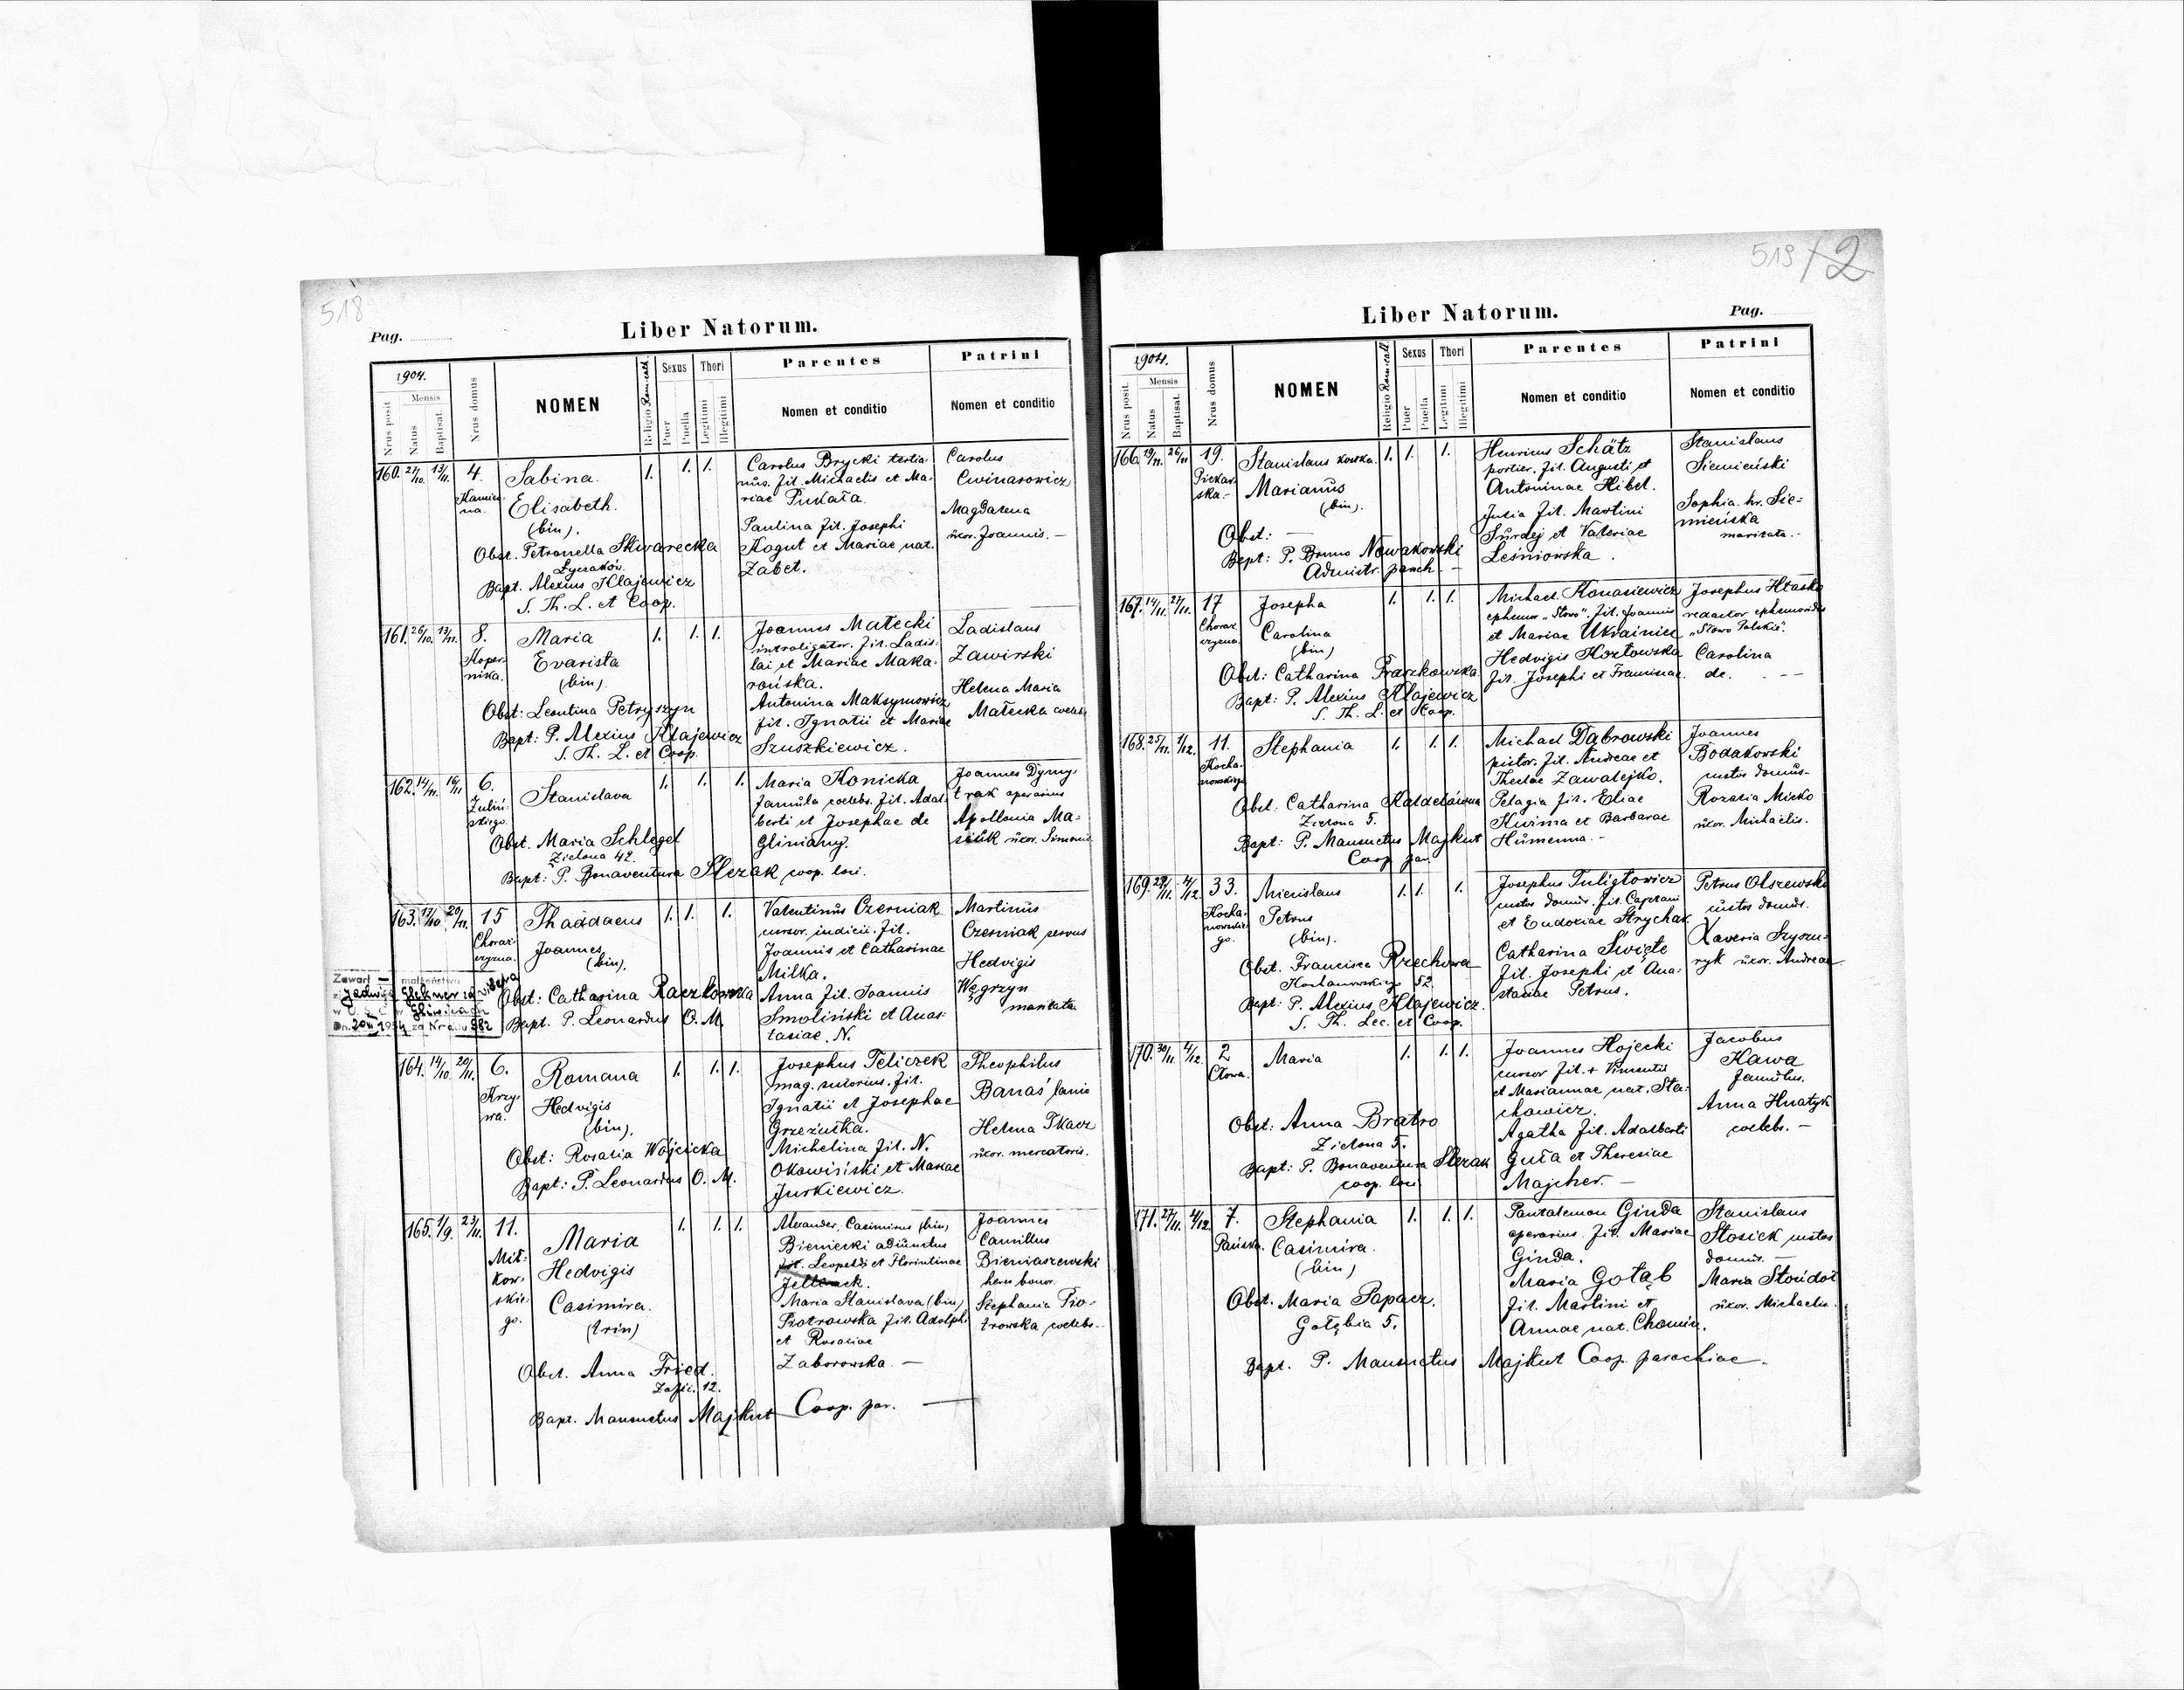 518
Pag.
Liber Natorum.
1904.
Mensis
Nrus posit
Natus
Baptisat.
Nrus domus
NOMEN
Religio Rom. cath.
Sexus
Puer
Puella
Thori
Legitimi
Illegitimi
Parentes
Nomen et conditio
Patrini
Nomen et conditio
160. 27/10. 13/11. 4.
Sabina
Elisabeth.
(bin).
1. 1. 1.
Obst. Petronella Skwarecka
Łyczaków.
Bapt. Alexius Klajewicz
S. Th. L. et Coop.
Carolus Brycki tertia-
nus. fil. Michaelis et Ma-
riae Pukała.
Paulina fil. Josephi
Kogut et Mariae nat.
Zabet.
Carolus
Cwinarowicz
Magdalena
uxor. Joannis. —
161. 26/10. 13/11. 8.
Koper-
nika.
Maria
Evarista
(bin).
1. 1. 1.
Obst: Leontina Petryszyn
Bapt: P. Alexius Klajewicz
S. Th. L. et Coop.
Joannes Małecki
introligator. fil. Ladis-
lai et Mariae Maka-
rońska.
Antonina Maksymowicz
fil. Ignatii et Mariae
Szuszkiewicz.
Ladislaus
Zawirski
Helena Maria
Małecka coelebs
162. 14/11. 16/11 6.
Zuliń-
skiego.
Stanislava
1. 1. 1.
Obst. Maria Schlegel
Zielona 42.
Bapt: P. Bonaventura Ślezak coop. loci.
Maria Konicka
famula coelebs. fil. Adal-
berti et Josephae de
Gliniany.
Joannes Dymy-
trak operarius
Apollonia Ma-
siuk uxor. Simonis
163. 17/10 20/11. 15
Chorąż-
czyzna.
Thaddaeus
Joannes
(bin).
1. 1. 1.
Obst: Catharina Raczkowska
Bapt. P. Leonardus O. M.
Zawarł małżeństwo
Valentinus Czerniak
cursor. indicii. fil.
Joannis et Catharinae
Milka.
Anna fil. Joannis
Smoliński et Anas-
tasiae. N.
Martinus
Czerniak servus
Hedvigis
Węgrzyn
maritata
164. 14/10. 20/11. 6.
Krzy-
wa.
Romana
Hedvigis
(bin).
1. 1. 1.
Obst: Rosalia Wójcicka
Bapt: P. Leonardus O. M.
Josephus Teliczek
mag. sutorius. fil.
Ignatii et Josephae
Grzeżułka.
Michelina fil. N.
Okowiński et Mariae
Jurkiewicz.
Theophilus
Banaś lanio
Helena Tkacz
uxor. mercatoris.
165. 1/9. 23/11. 11.
Mił-
kow-
skie-
go.
Maria
Hedvigis
Casimira.
(trin)
1. 1. 1.
Obst. Anna Fried.
12.
Bapt. Mansuetus Majkut Coop. par. —
Alexander, Casimirus (bin)
Bieniecki adiunctus
fil. Leopoldi et Florintinae
Maria Stanislava (bin)
Piotrowska fil. Adolphi
et Rosaliae
Zaborowska. —
Joannes
Camillus
Bieniaszewski
heres bonor.
Stephania Pio-
trowska coelebs.
519 / 2
Liber Natorum.
Pag.
1904.
Mensis
Nrus posit.
Natus
Baptisat.
Nrus domus
NOMEN
Religio Rom. cath.
Sexus
Puer
Puella
Thori
Legitimi
Illegitimi
Parentes
Nomen et conditio
Patrini
Nomen et conditio
166. 19/11. 26/11 19.
Piekar-
ska.-
Stanislaus Kostka.
Marianus
(bin).
1. 1. 1.
Obst: —
Bapt: P. Bruno Nowakowski
Administr. paroch. —
Henricus Schätz
portier. fil. Augusti et
Antoninae Hibel.
Julia fil. Martini
Surdej et Valeriae
Leśniowska.
Stanislaus
Siemieński
Sophia. hr. Sie-
mieńska
maritata.-
167. 14/11. 27/11. 17
Chorąż-
czyzna.
Josepha
Carolina
(bin)
1. 1. 1.
Obst: Catharina Fraczkowska
Bapt: P. Alexius Klajewicz
S. Th. L. et Koop.
Michael Konasiewicz
ephemer „Słowo". fil. Joannis
et Mariae Ukrainiec
Hedvigis Kozłowska
fil. Josephi et Franciscae
Josephus Hłasko
redactor ephemeridis
„Słowo Polskie".
Carolina
de. - - -
168. 25/11. 1/12. 11.
Kocha-
nowskiego
Stephania
1. 1. 1.
Obst. Catharina Kaldetówna
Zielona 5.
Bapt: P. Mansuetus Majkut
Coop par.
Michael Dąbrowski
pictor. fil. Andreae et
Theclae Zawalejko.
Pelagia fil. Eliae
Kuźma et Barbarae
Humenna.-
Joannes
Bodakowski
custos domus-
Rozalia Micko
uxor. Michaelis.
169. 29/11. 4/12. 33.
Kocha-
nowskie-
go.
Miecislaus
Petrus
(bin).
1. 1. 1.
Obst. Francisca Rzechowa
Kochanowskiego 52.
Bapt: P. Alexius Klajewicz.
S. Th. Lec. et Coop.
Josephus Tuligłowicz
custos domus. fil. Capitani
et Eudoxiae Strychar
Catharina Święte
fil. Josephi et Ana-
stasiae Petrus.
Petrus Olszewski
custos domus.
Xaveria Szysz-
ryk uxor. Andreae
170. 30/11. 4/12. 2
Cłowa.
Maria
1. 1. 1.
Obst: Anna Bratro
Zielona 5.
Bapt: P. Bonaventura Ślezak
coop. loci
Joannes Hojecki
cursor fil. + Vincentii
et Mariannae nat. Sta-
chowicz.
Agatha fil. Adalberti
Guła et Theresiae
Majcher. —
Jacobus
Kawa
famulus.
Anna Hnatyk
coelebs. —
171. 27/11. 4/12. 7.
Pańska.
Stephania
Casimira.
(bin)
1. 1. 1.
Obst. Maria Papacz.
Gołębia 5.
Bapt. P. Mansuetus Majkut Coop. parochiae.
Pantalemon Ginda
operarius. fil. Mariae
Ginda.
Maria Gołąb
fil. Martini et
Annae nat. Chomin.
Stanislaus
Stosick custos
domus. —
Maria
uxor. Michaelis.